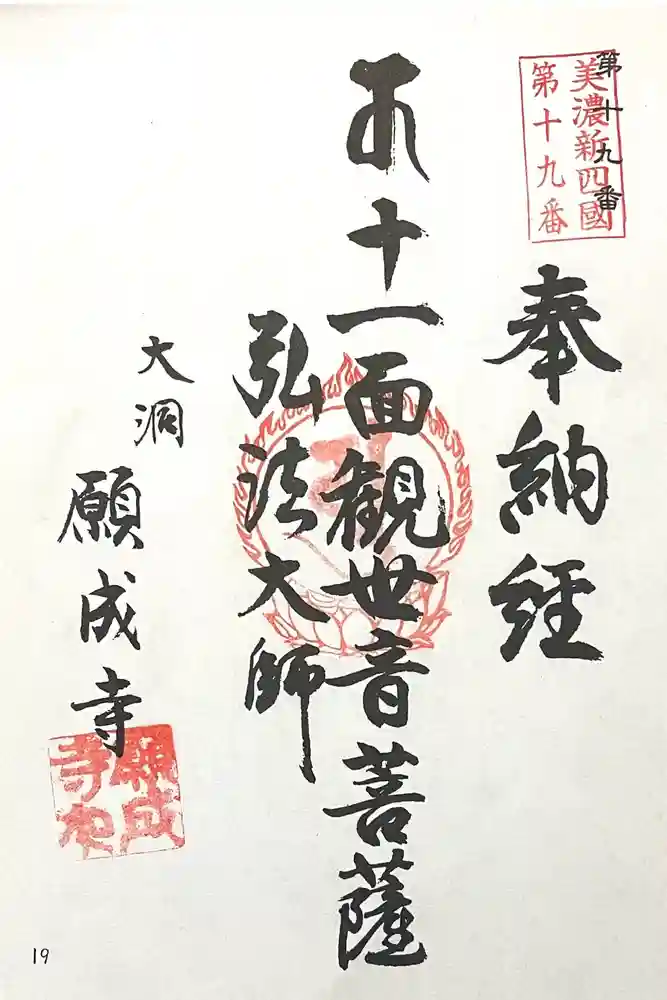 第十九番
美濃新四國
第十九番
奉納経
十一面観世音菩薩
弘法大師
大洞
願成寺
願成
寺
19